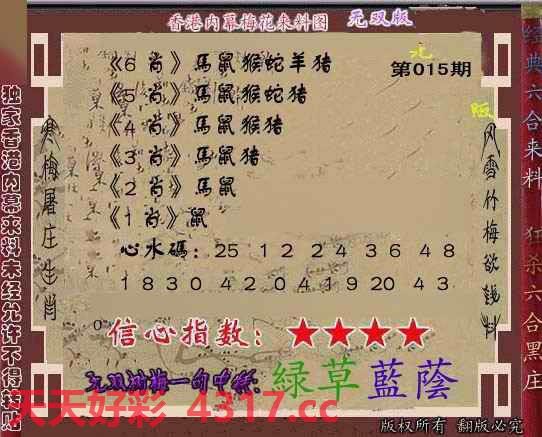 香港内幕梅花来料图 无双版
第015期
《6 肖》馬鼠猴蛇羊猪
《5 肖》馬鼠猴蛇猪
《4 肖》馬鼠猴猪
《3 肖》馬鼠猪
《2 肖》馬鼠
《1 肖》鼠
心水碼: 25 12 24 36 48
18 30 42 04 19 20 43
信心指数: ★★★★
一句中特: 緑草藍蔭
天天好彩 4317.cc
版权所有 翻版必究
独家香港内幕来料未经允许不得转贴
寒梅屠庄生肖
风雪竹梅欲钱料
经典六合来料 狂杀六合黑庄